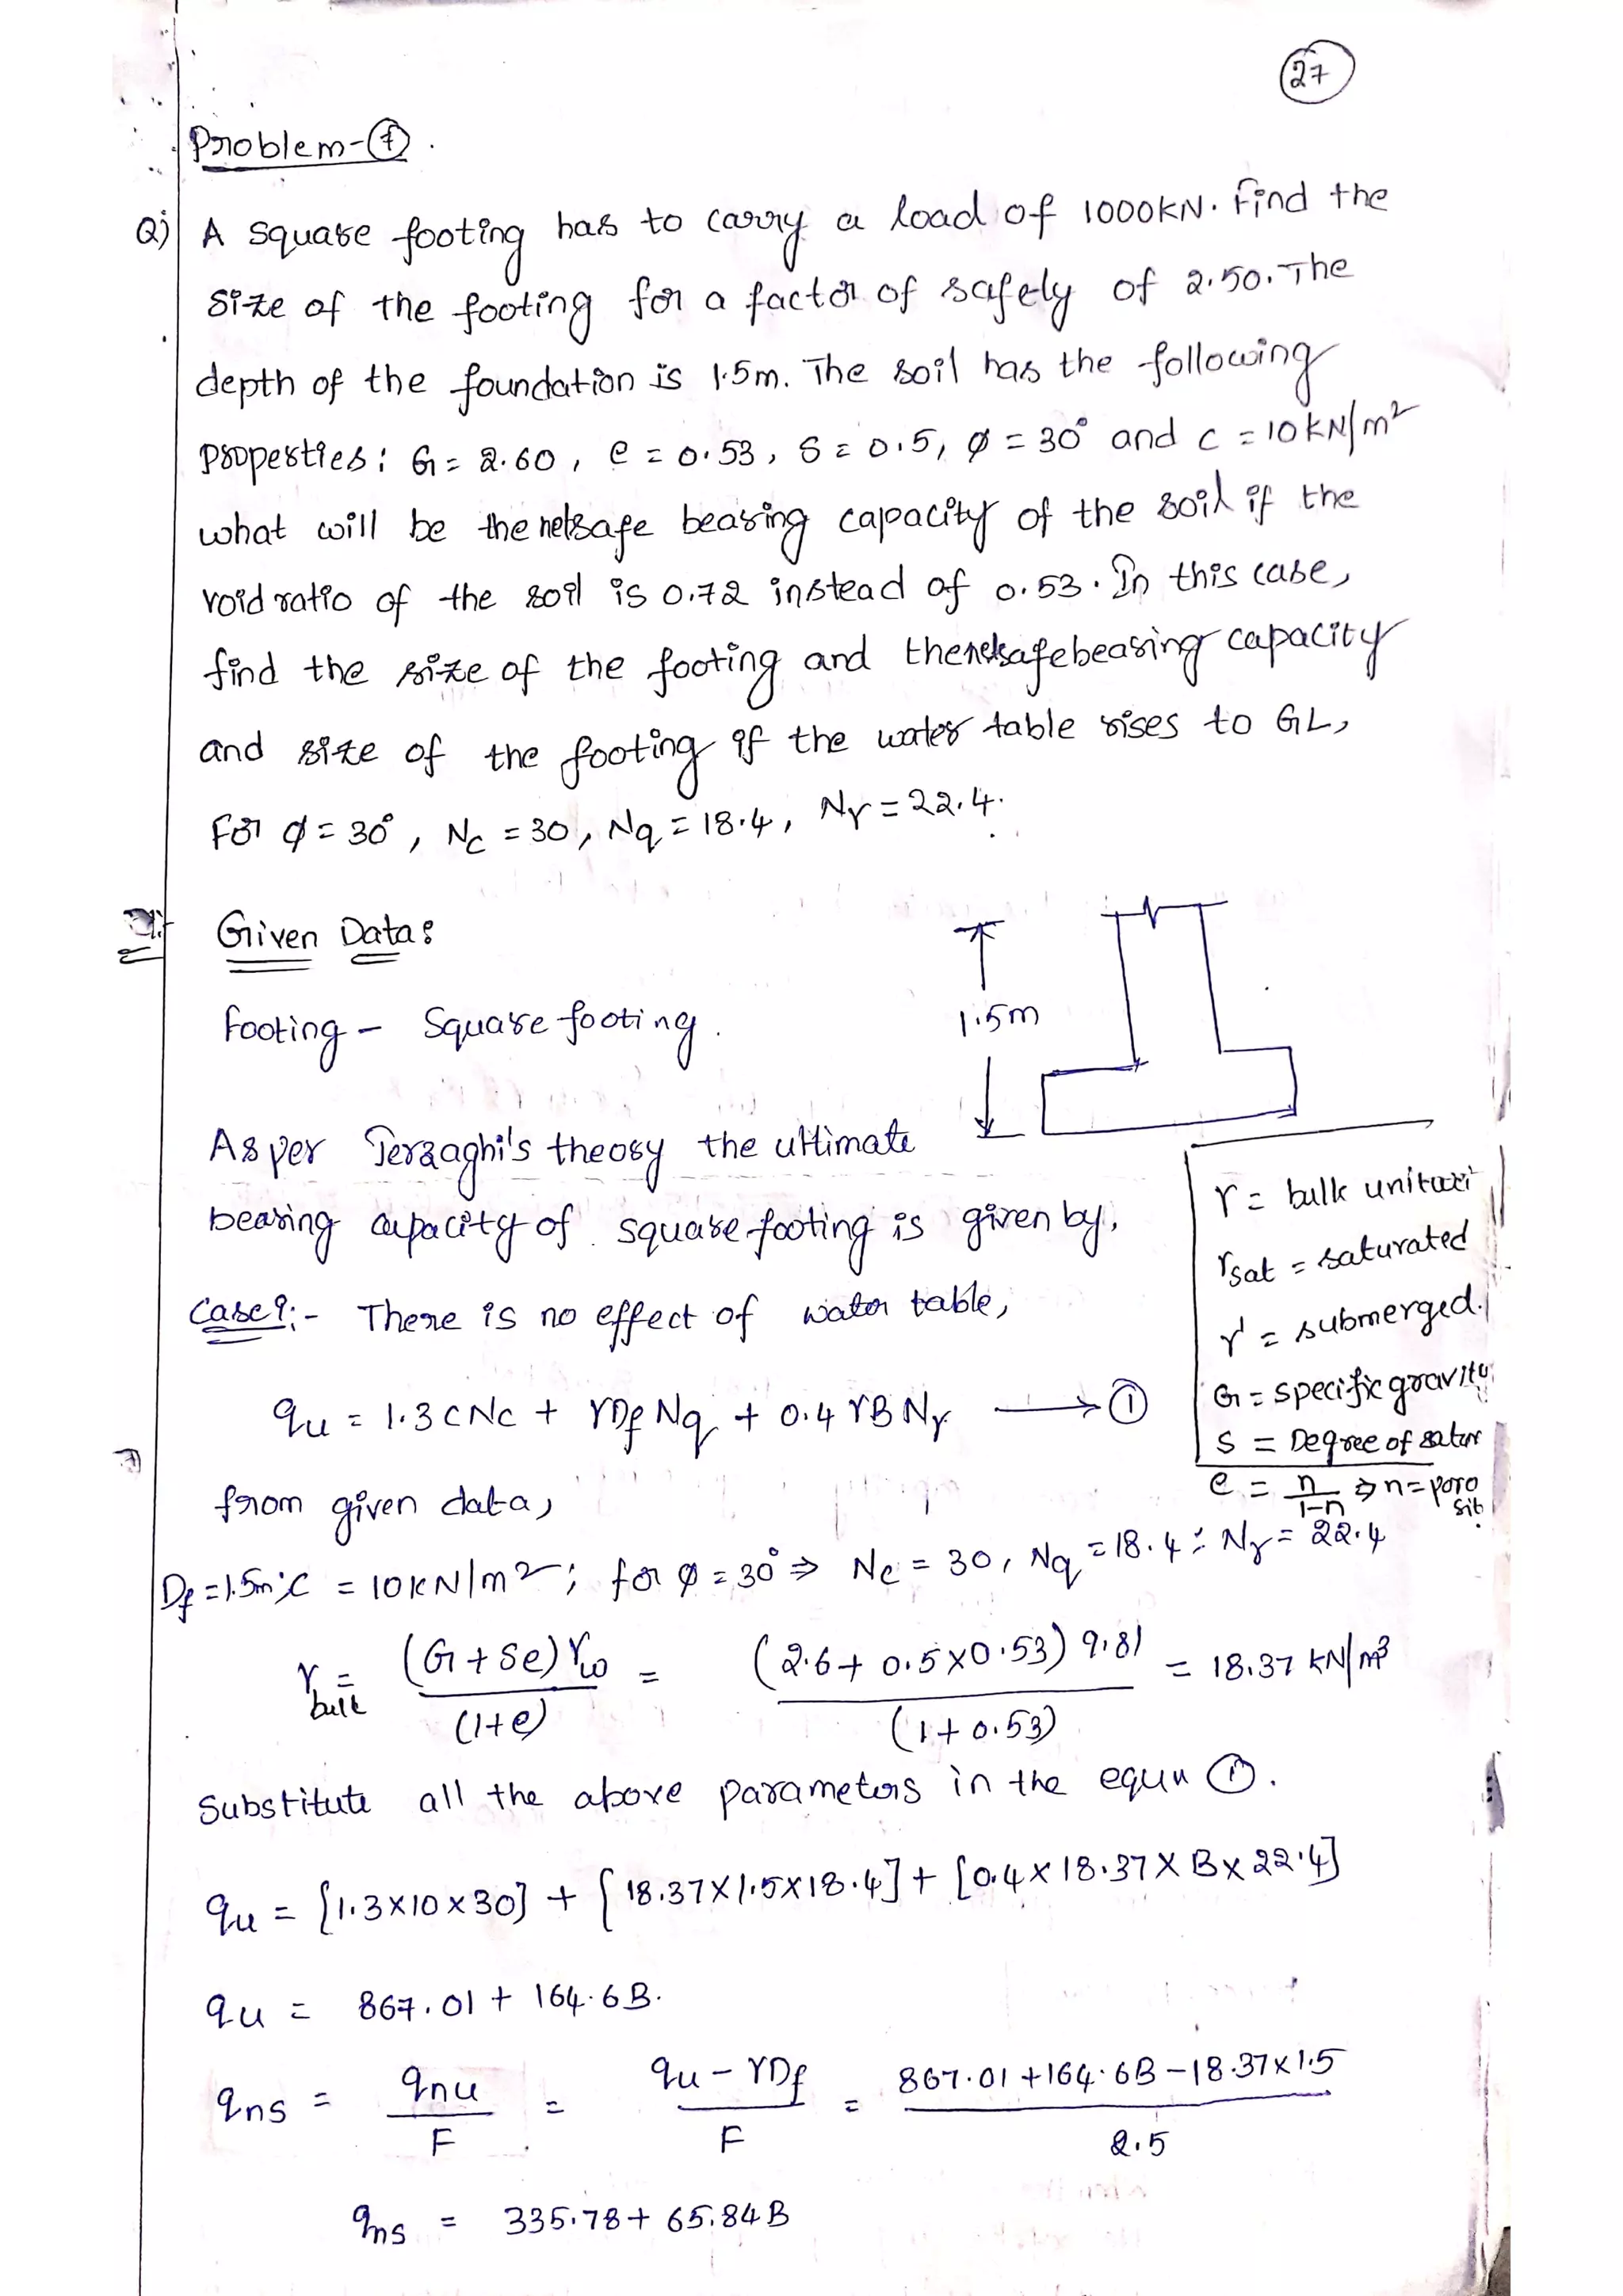 27
Problem-7.
Q) A square footing has to carry a load of 1000KN. Find the
size of the footing for a factor of safety of 2.50. The
depth of the foundation is 1.5m. The soil has the following
properties: G = 2.60, e = 0.53, S = 0.5, ϕ = 30° and c = 10 kN/m²
what will be the net safe bearing capacity of the soil if the
void ratio of the soil is 0.72 instead of 0.53. In this case,
find the size of the footing and the net safe bearing capacity
and size of the footing if the water table rises to GL,
For ϕ = 30°, Nc = 30, Nq = 18.4, Nγ = 22.4.
Given Data:
1.5m
Footing - Square footing.
As per Terzaghi's theory the ultimate
bearing capacity of square footing is given by,
γ = bulk unit
γsat = saturated
γ' = submerged.
G = specific gravity
S = Degree of satur
e = n/1-n ⇒ n = poro
sit
Case i:- There is no effect of water table,
qu = 1.3 CNc + γDf Nq + 0.4 γB Nγ → ①
from given data,
Df = 1.5m; C = 10 KN/m²; for ϕ = 30° ⇒ Nc = 30, Nq = 18.4; Nγ = 22.4
γbulk = (G + Se)γω / (1+e) = (2.6 + 0.5×0.53) 9.81 / (1 + 0.53) = 18.37 kN/m³
Substitute all the above parameters in the equn ①.
qu = [1.3×10×30] + [18.37×1.5×18.4] + [0.4×18.37×B×22.4]
qu = 867.01 + 164.6B.
qns = qnu / F = qu - γDf / F = 867.01 + 164.6B - 18.37×1.5 / 2.5
qns = 335.78 + 65.84B